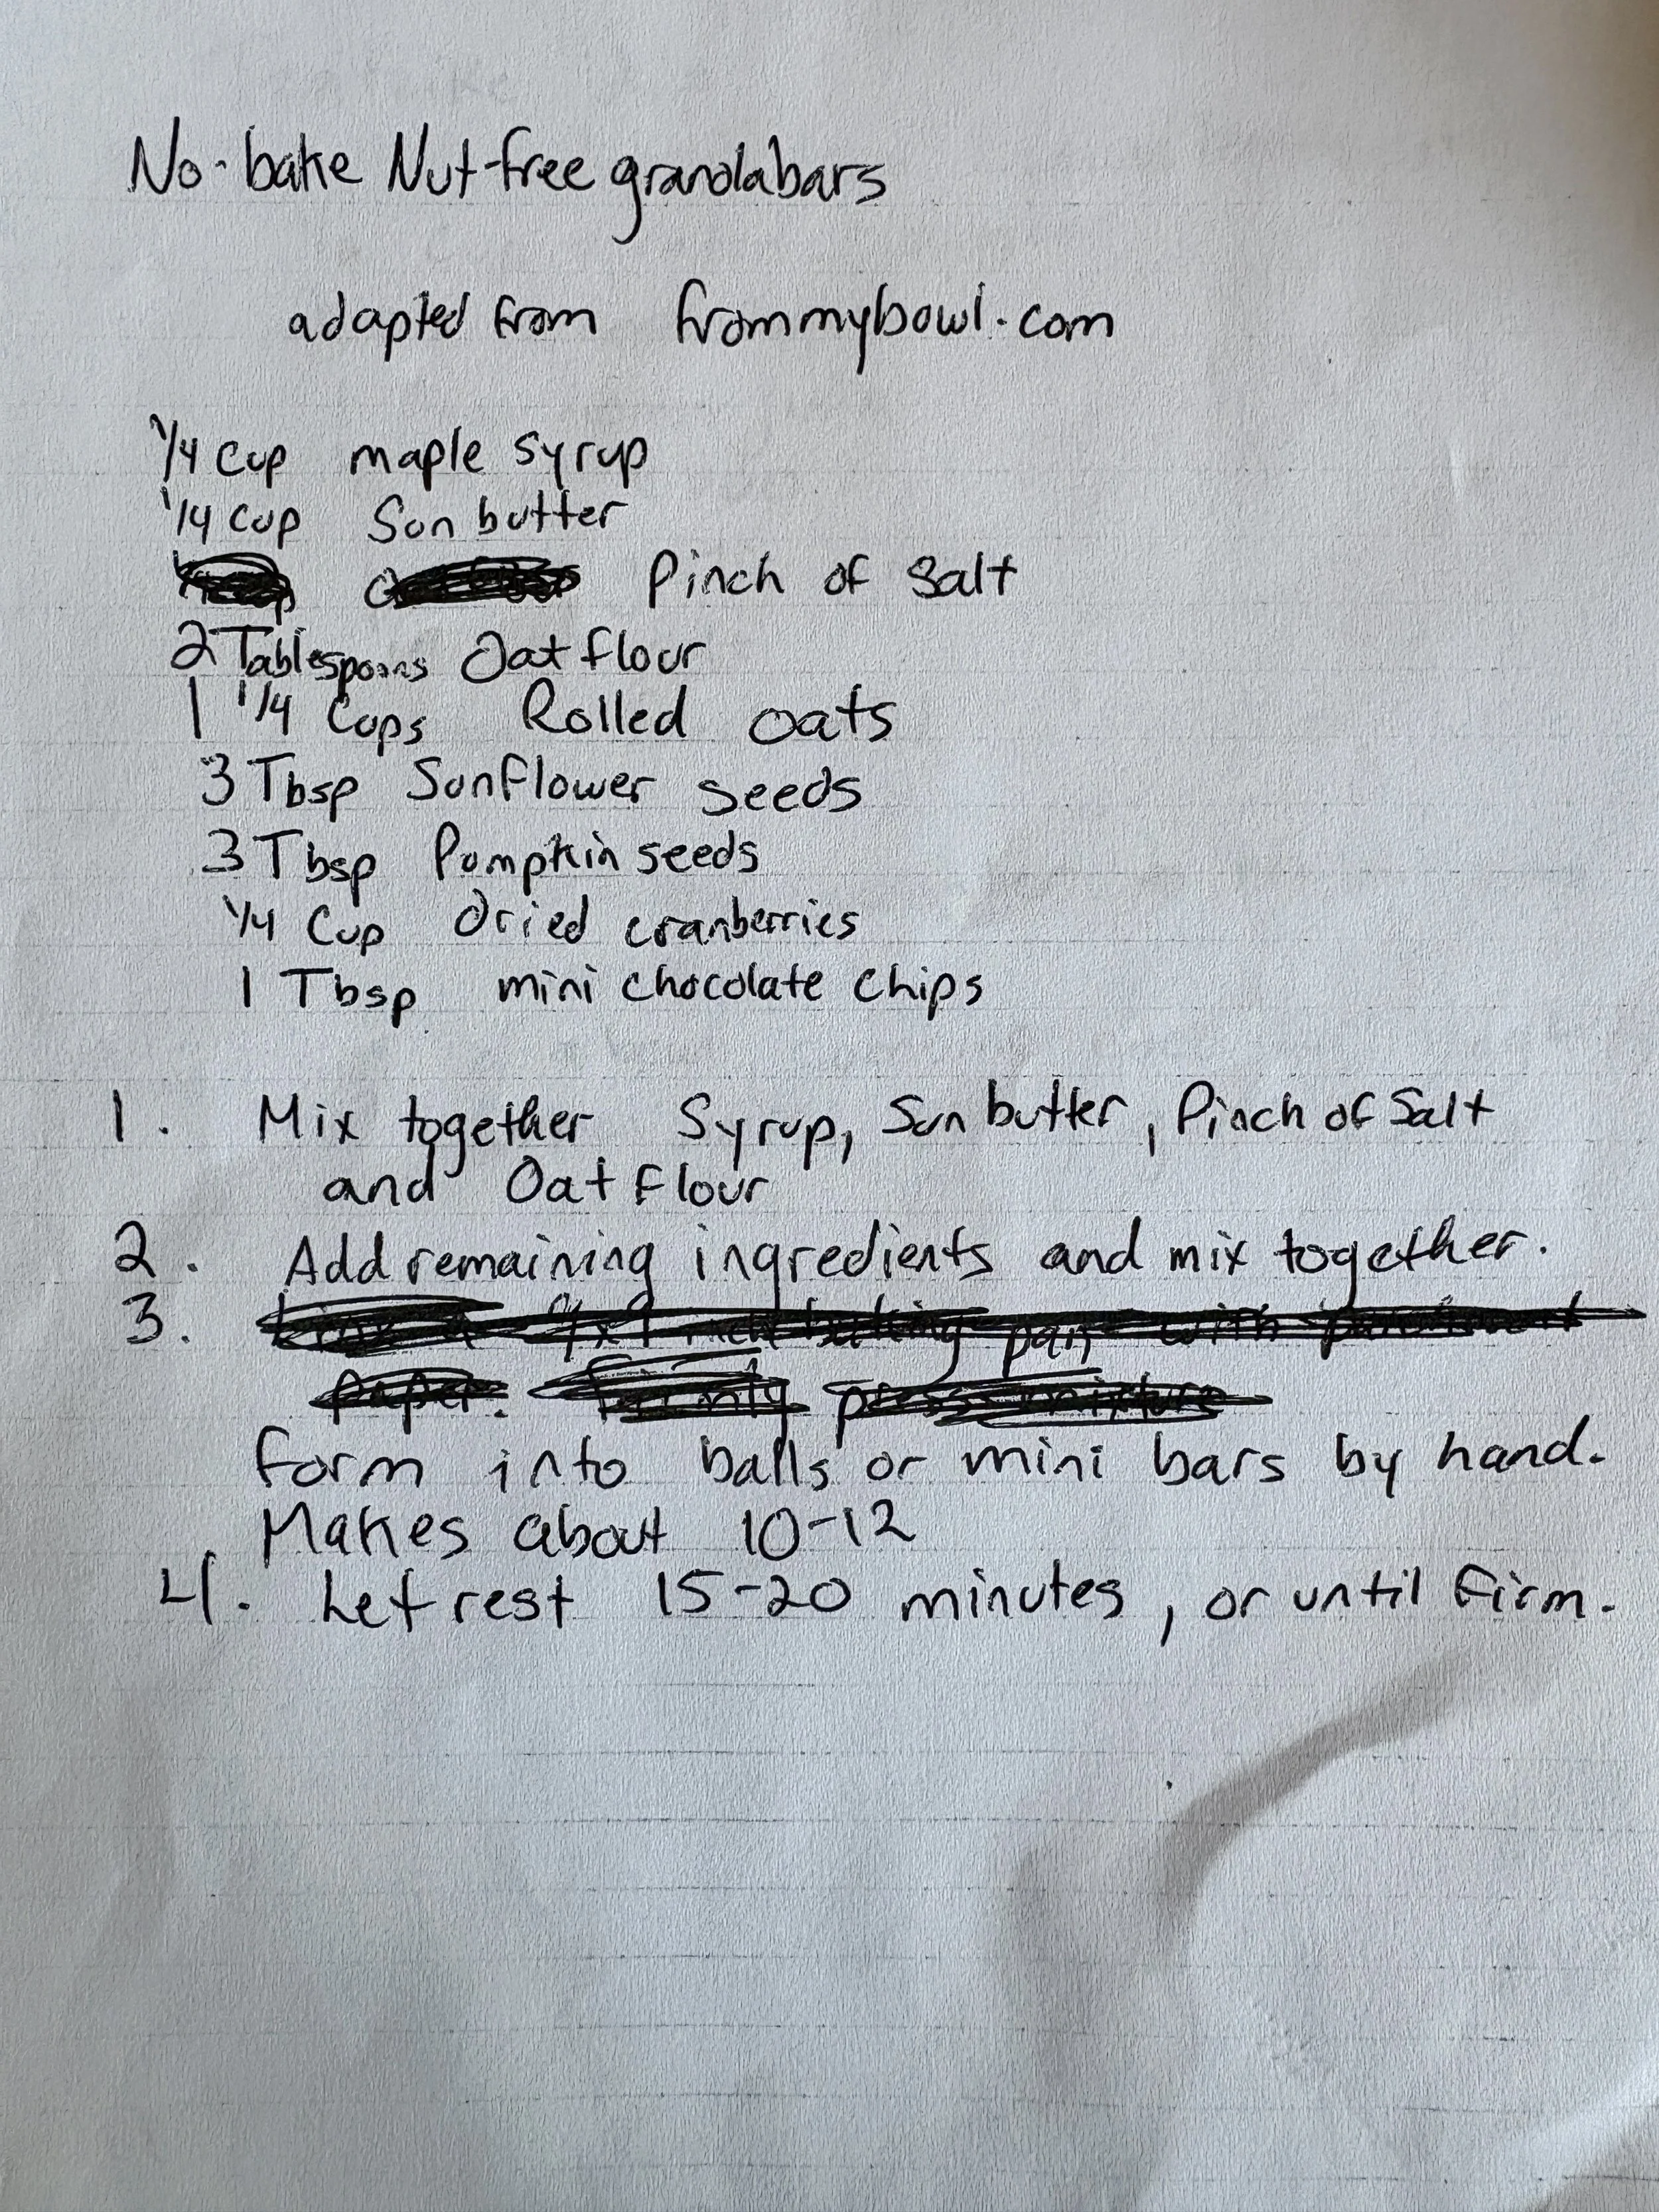 No-bake Nut-free granolabars
adapted from frommybowl.com
1/4 cup maple syrup
1/4 cup Sun butter
Pinch of Salt
2 Tablespoons Oat flour
1 1/4 Cups Rolled oats
3 Tbsp Sunflower seeds
3 Tbsp Pumpkin seeds
1/4 Cup dried cranberries
1 Tbsp mini chocolate chips
1. Mix together Syrup, Sun butter, Pinch of Salt
and Oat Flour
2. Add remaining ingredients and mix together.
3. baking pan with
paper. firmly press mixture
form into balls or mini bars by hand.
Makes about 10-12
4. Let rest 15-20 minutes, or until firm.